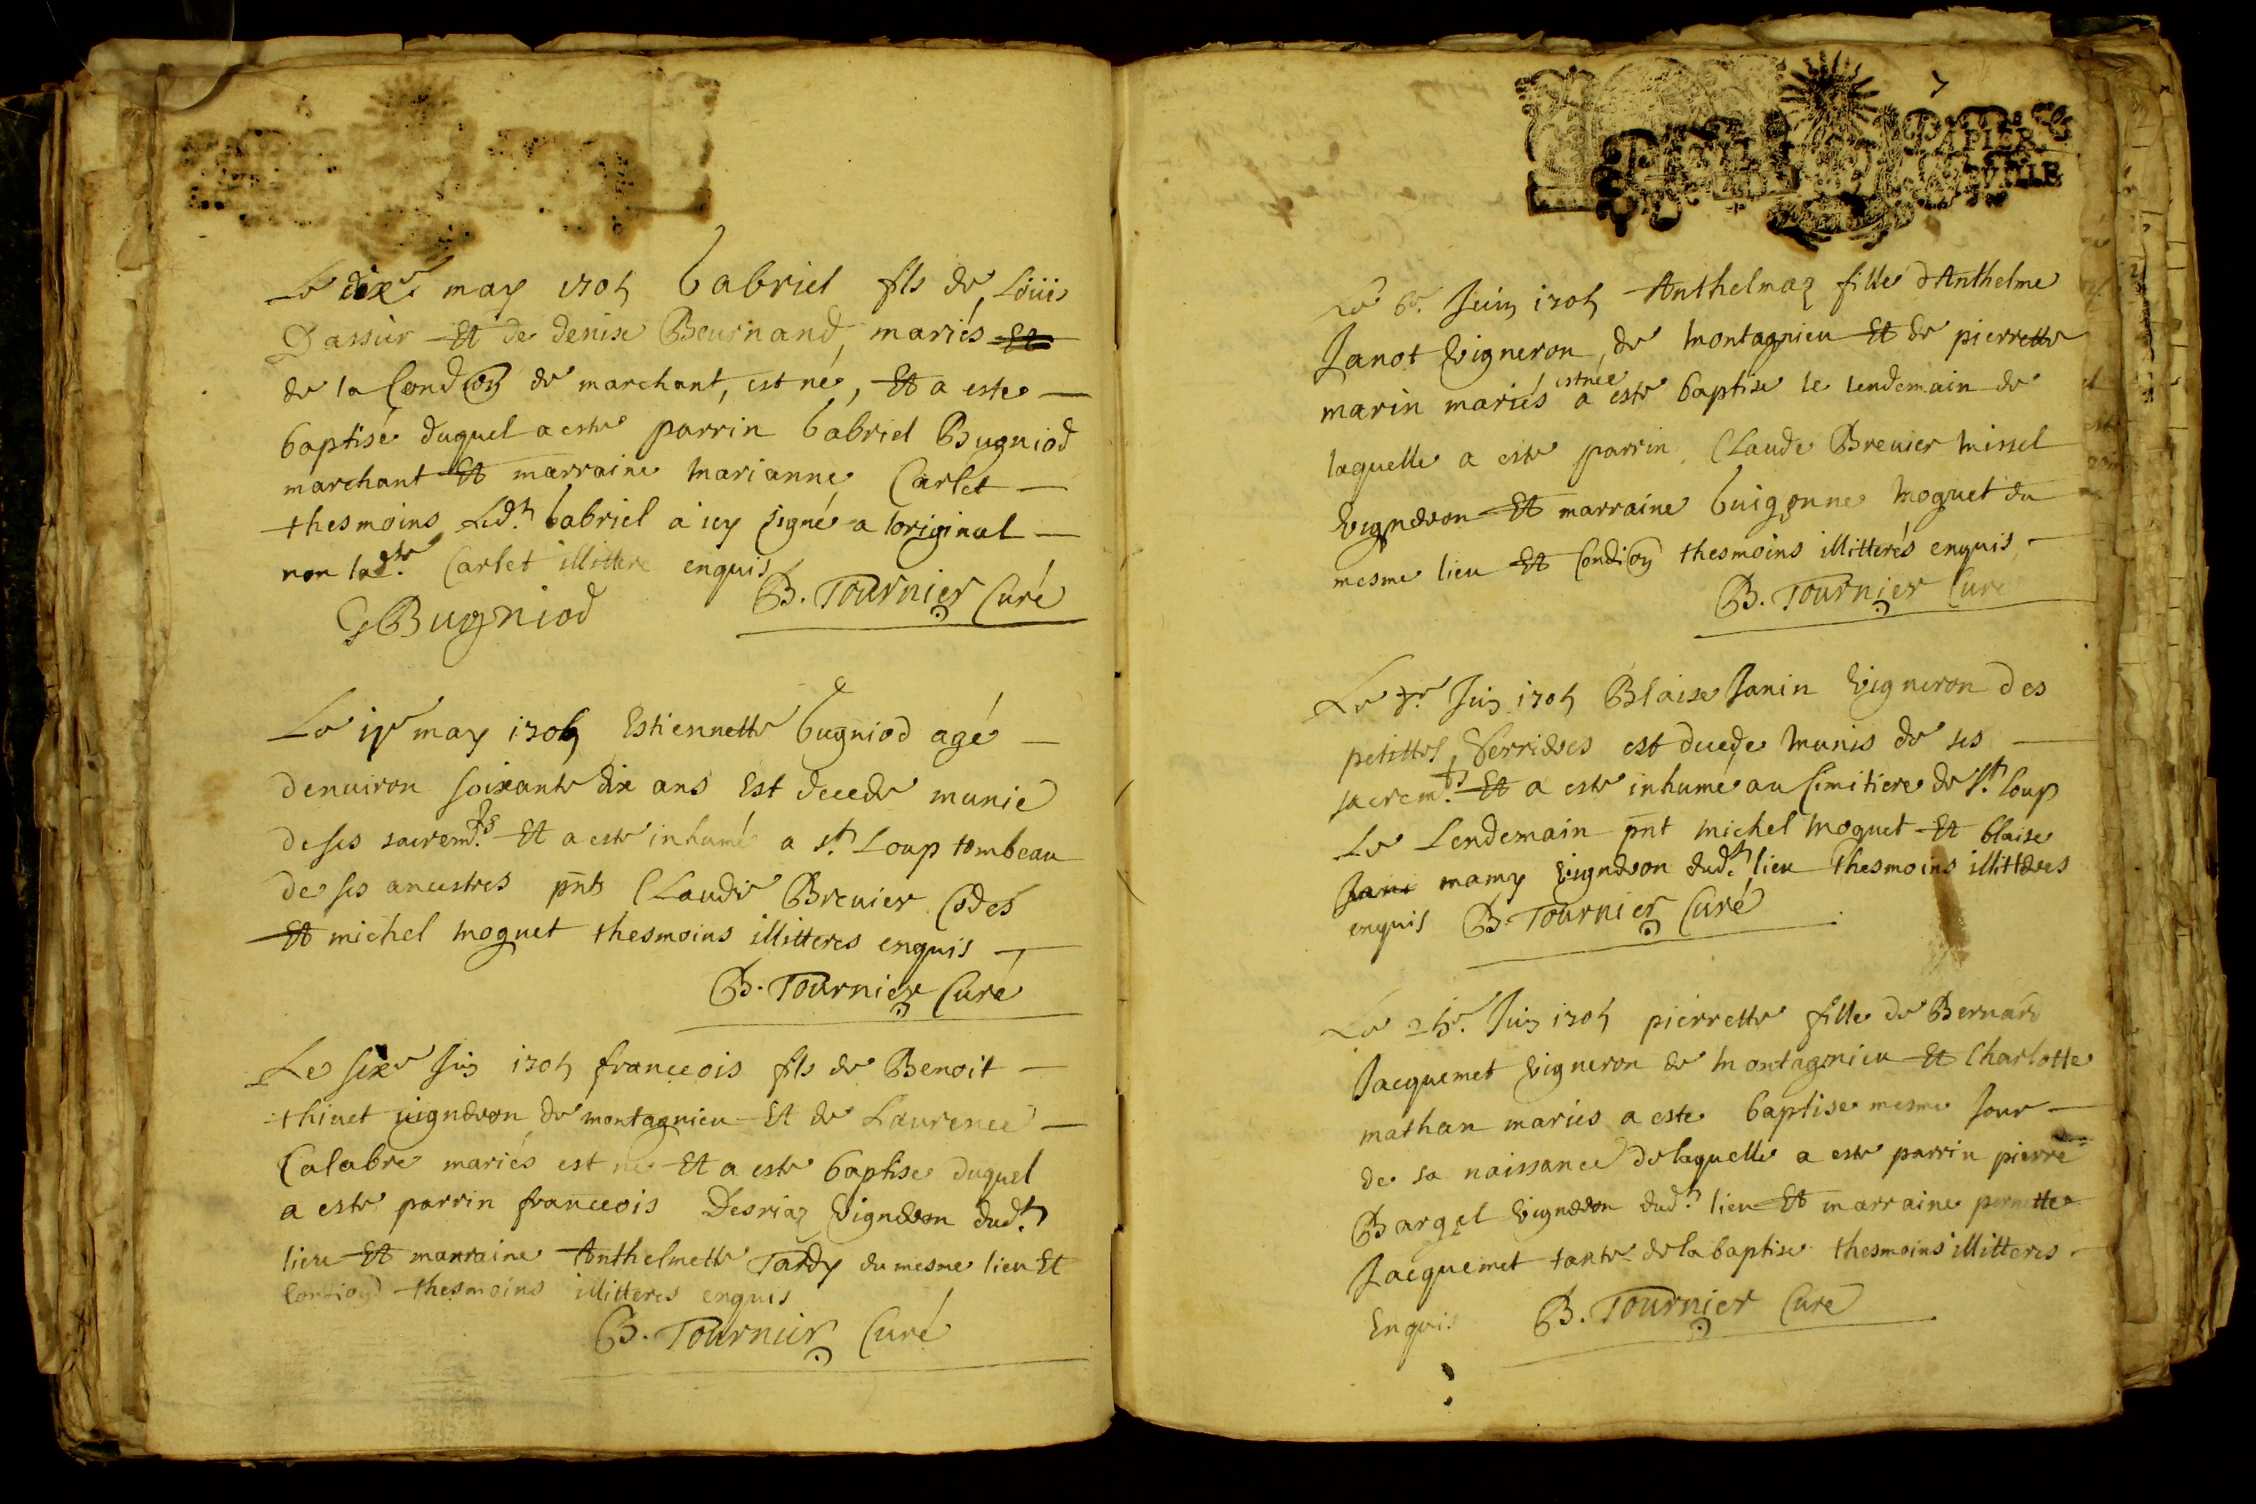 Le dixe may 1705 Gabriel fils de Loüis
Dassür Et de denise Bournand, mariés Et
de la Condon de marchant, est né, Et a este
baptisé duquel a este parrin Gabriel Bugniod
marchant Et marraine marianne Carlet
thesmoins Ledt Gabriel a icy signé a loriginal
non lad.te Carlet illittere enquis
GBugniod B. Tournier Curé
Le may 1705 Estiennette bugniod agé
denuiron soixante dix ans Est decede munie
de ses sacremts Et a este inhumé a st Loup tombeau
de ses ancestres pnts Claude Breuier
Et michel moguet thesmoins illitteres enquis
B. Tournier Curé
Le sixe Juin 1705 franceois fils de Benoit
thiuet vigneron de montagnieu Et de Laurence
Calabre mariés est né Et a este baptise duquel
a este parrin franceois Desriaz Vigneron dudt
lieu Et marraine Anthelmette Tardy du mesme lieu Et
thesmoins illitteres enquis
B. Tournier Curé
7
PAPIER
Le 6e Juin 1705 Anthelmaz fille dAnthelme
Janot Vigneron, de montagnieu Et de pierrette
marin mariés est née a este baptise le lendemain de
laquelle a este parrin Claude Breuier missel
Vigneron Et marraine Guigonne moguet du
mesme lieu Et Condion thesmoins illitterés enquis
B. Tournier Curé
Le 7e Juin 1705 Blaise Janin Vigneron des
petittes Verrieres est decede munis de ses
sacremts Et a este inhumé au Cimitiere de St Loup
Le Lendemain pnt michel moguet Et blaise
Jani mamy Vigneron dudt lieu thesmoins illitteres
enquis B. Tournier Curé
Le Juin 1705 pierrette fille de Bernard
Jacquemet Vigneron de montagnieu Et Charlotte
mathan mariés a este baptise mesme Jour
de sa naissance de laquelle a este parrin pierre
Bargel Vigneron dudt lieu Et marraine pernette
Jacquemet tante de la baptise thesmoins illitteres
Enquis B. Tournier Curé